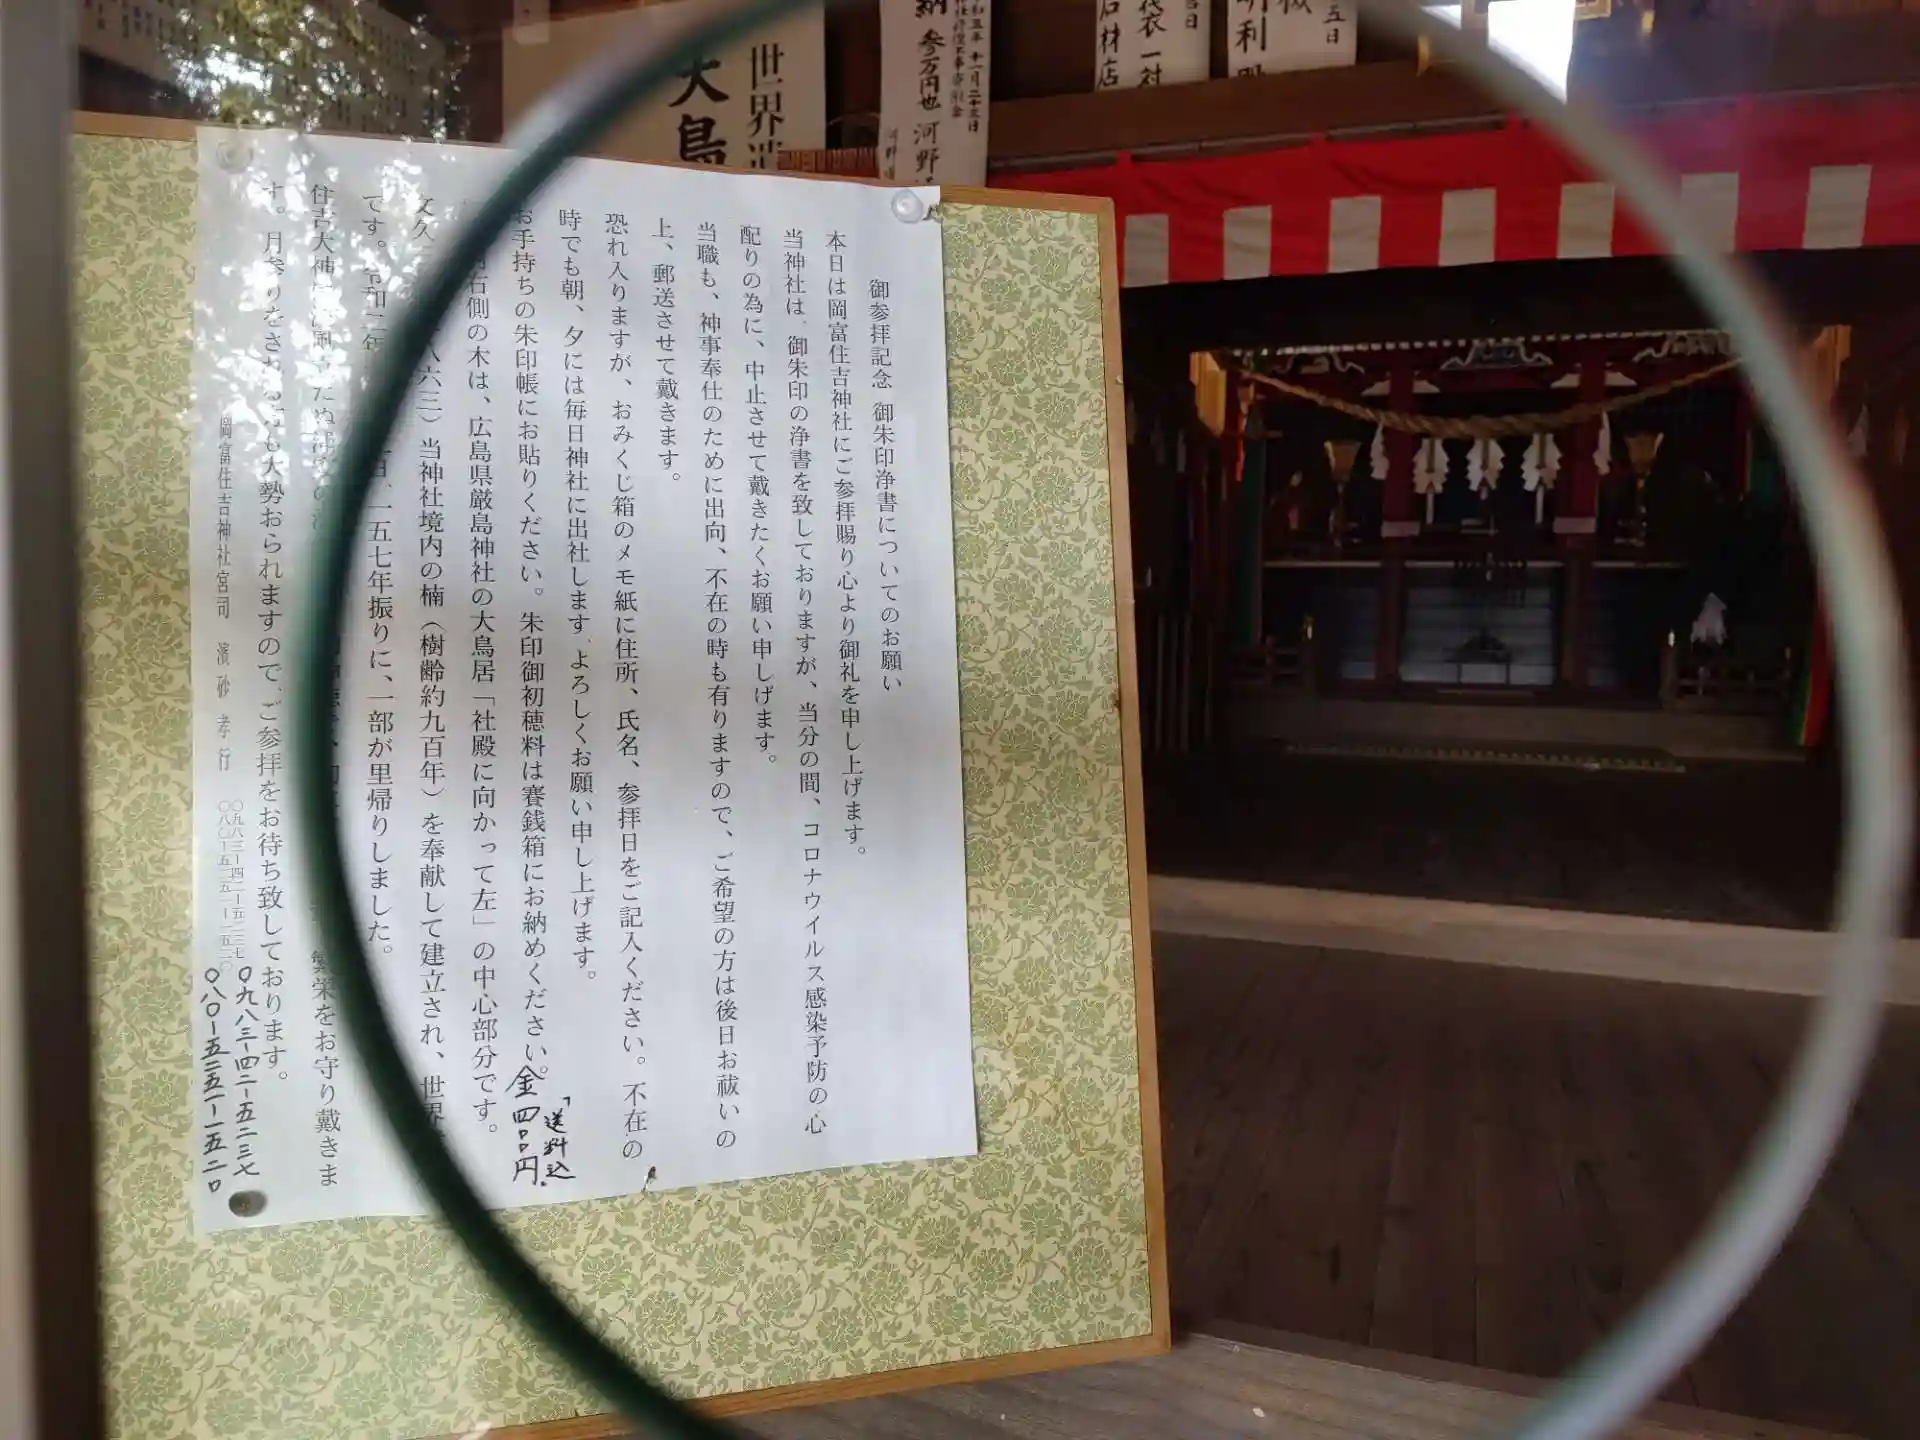 御参拝記念 御朱印浄書についてのお願い
本日は岡富住吉神社にご参拝賜り心より御礼を申し上げます。
当神社は、御朱印の浄書を致しておりますが、当分の間、コロナウイルス感染予防の心
配りの為に、中止させて戴きたくお願い申しげます。
当職も、神事奉仕のために出向、不在の時も有りますので、ご希望の方は後日お祓いの
上、郵送させて戴きます。
恐れ入りますが、おみくじ箱のメモ紙に住所、氏名、参拝日をご記入ください。不在の
時でも朝、夕には毎日神社に出社します、よろしくお願い申し上げます。
お手持ちの朱印帳にお貼りください。朱印御初穂料は賽銭箱にお納めください。金四〇〇円
「送料込
右側の木は、広島県厳島神社の大鳥居「社殿に向かって左」の中心部分です。
文久 八六三）当神社境内の楠（樹齢約九百年）を奉献して建立され、世界
です。令和二年 一五七年振りに、一部が里帰りしました。
住吉大神 繁栄をお守り戴きま
す。月参りをされる 大勢おられますので、ご参拝をお待ち致しております。
岡富住吉神社宮司 濱砂孝行
〇九八三ー四二ー五二三七
〇八〇ー五二五一ー一五二〇
〇九八三ー四二ー五二三七
〇八〇ー五二五一ー一五二〇
五日
明利
袋一対
石材店
十一月二十三日
納 参万円也 河野
世界
大鳥